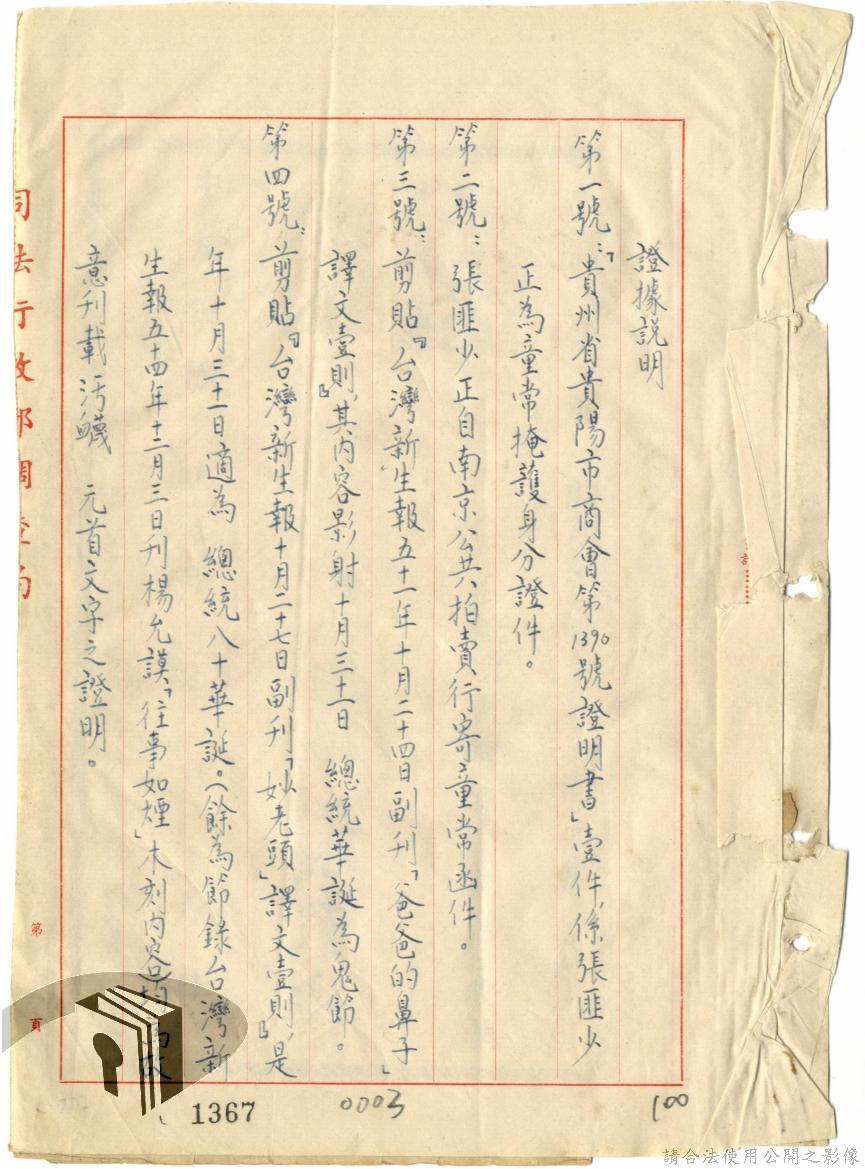 證據說明
第一號：「貴州省貴陽市商會第1390號證明書」壹件，係張匪少
正為童常掩護身分證件。
第二號：張匪少正自南京公共拍賣行寄童常函件。
第三號：剪貼『台灣新生報五十一年十月二十四日副刊「爸爸的鼻子」
譯文壹則』，其內容影射十月三十一日 總統華誕為鬼節。
第四號：剪貼『台灣新生報十月二十七日副刊「妙老頭」譯文壹則』，是
年十月三十一日適為 總統八十華誕。（餘為節錄台灣新
生報五十四年十二月三日刊楊允謨「往事如煙」木刻內容均為故
意刊載污衊 元首文字之證明。
司法行政部調查局
第 頁
1367
0003
100
請合法使用公開之影像